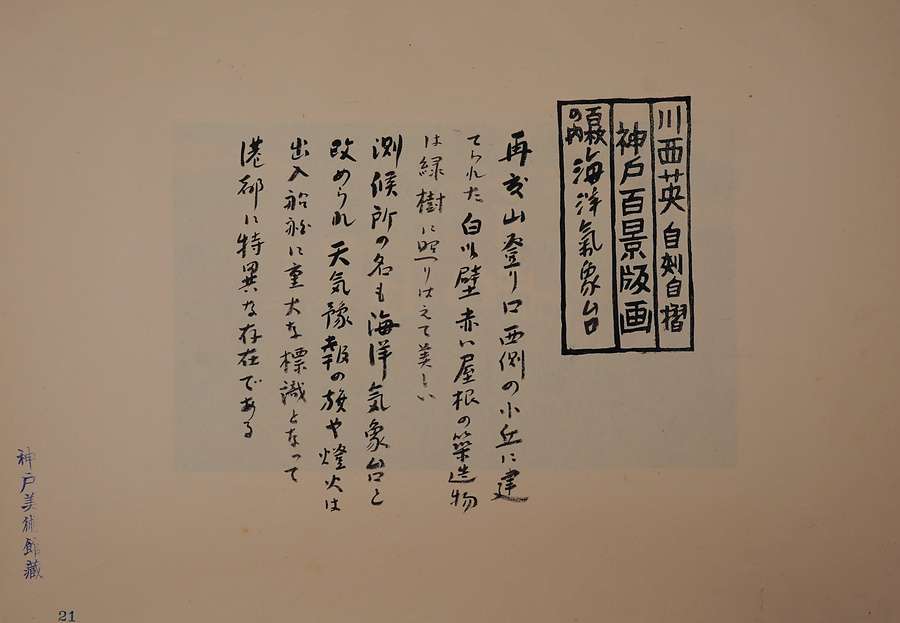 川西英 自刻自摺
神戸百景版画
百枚の内 海洋氣象台
再度山登り口西側の小丘に建
てられた白い壁赤い屋根の築造物
は緑樹に照りはえて美しい
測候所の名も海洋気象台と
改められ天気豫報の旗や燈火は
出入船舶に重大な標識となって
港都に特異な存在である
神戸美術館藏
21